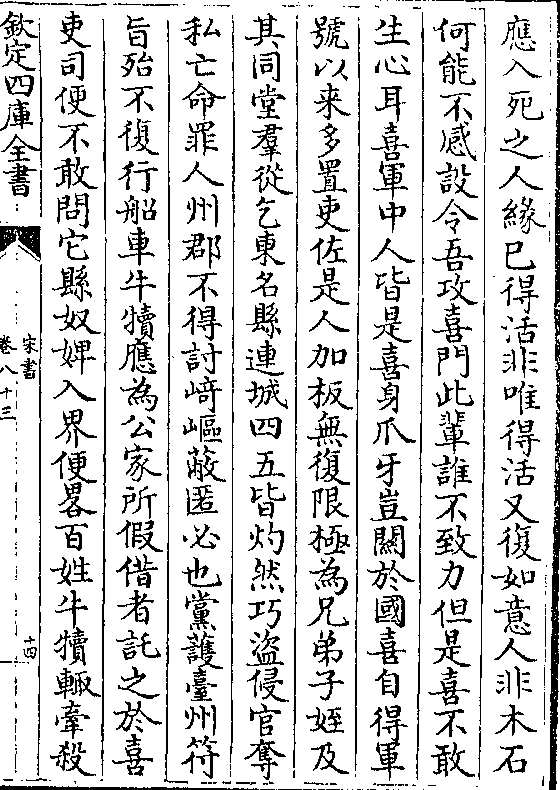 應入死之人緣已得活非唯得活又復如意人非木石
何能不感設令吾攻喜門此輩誰不致力但是喜不敢
生心耳喜軍中人皆是喜身爪牙豈關於國喜自得軍
號以来多置吏佐是人加板無復限極為兄弟子姪及
其同堂羣從乞東名縣連城四五皆灼然巧盜侵官奪
私亡命罪人州郡不得討崎嶇蔽匿必也黨護臺州符
旨殆不復行船車牛犢應為公家所假借者託之於喜
吏司便不敢問它縣奴婢入界便畧百姓牛犢輙牽殺
欽定四庫全書
宋書
卷八十三
十四